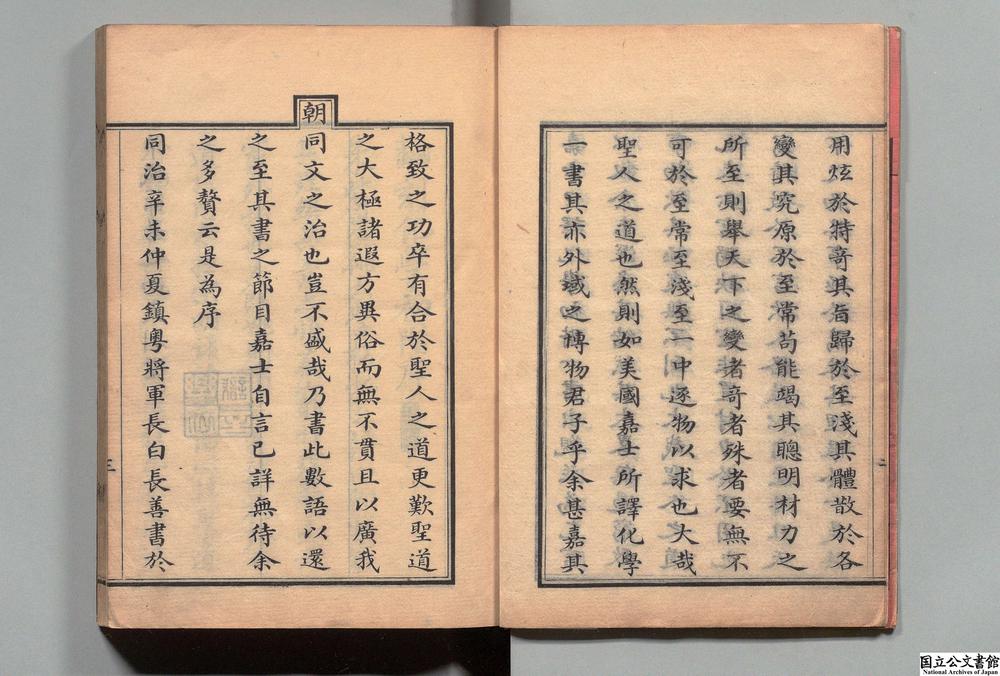 用炫於特奇其旨歸於至淺其體散於各
變其究原於至常苟能竭其聰明材力之
所至則舉天下之變者奇者殊者要無不
可於至常至淺至一中逐物以求也大哉
聖人之道也然則如美國嘉士所譯化學
一書其亦外域之博物君子乎余甚嘉其
二
格致之功卒有合於聖人之道更歎聖道
之大極諸遐方異俗而無不貫且以廣我
朝
同文之治也豈不盛哉乃書此數語以還
之至其書之節目嘉士自言已詳無待余
之多贅云是為序
同治辛未仲夏鎮粵將軍長白長善書於
三
国立公文書館
National Archives of Japan